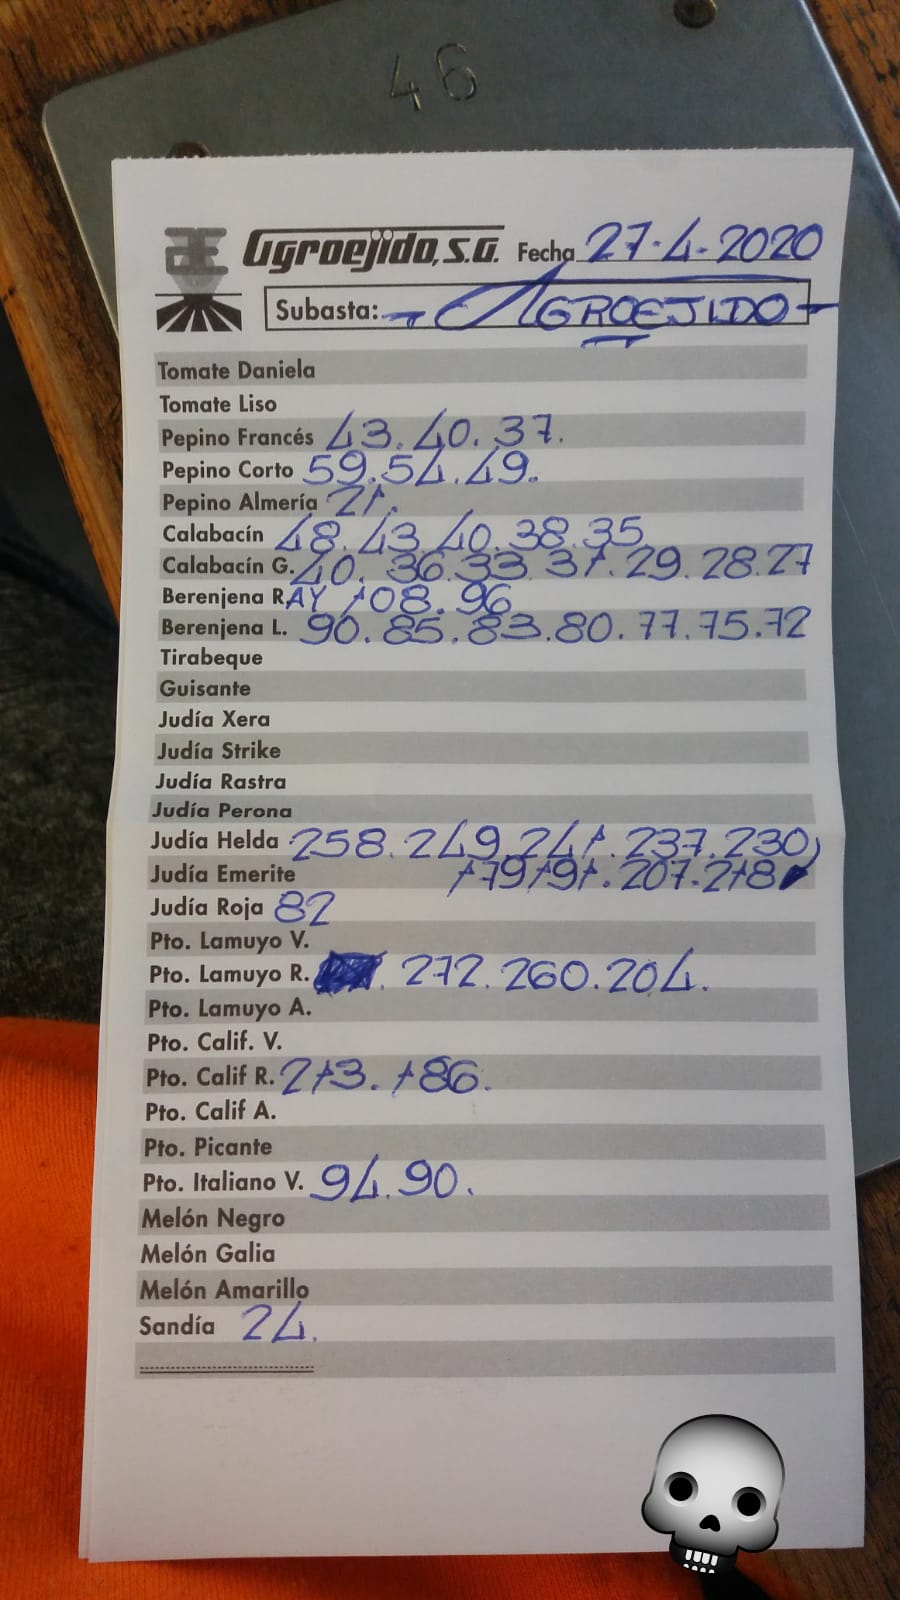 46
Agroejido, S.A. Fecha 27-4-2020
Subasta: - AGROEJIDO -
Tomate Daniela
Tomate Liso
Pepino Francés 43. 40. 37.
Pepino Corto 59. 54. 49.
Pepino Almería 21.
Calabacín 48. 43. 40. 38. 35
Calabacín G. 40. 36. 33. 31. 29. 28. 27
Berenjena RAY 108. 96
Berenjena L. 90. 85. 83. 80. 77. 75. 72
Tirabeque
Guisante
Judía Xera
Judía Strike
Judía Rastra
Judía Perona
Judía Helda 258. 249. 241. 237. 230
Judía Emerite 179 191. 207. 218
Judía Roja 82
Pto. Lamuyo V.
Pto. Lamuyo R. 272. 260. 204.
Pto. Lamuyo A.
Pto. Calif. V.
Pto. Calif R. 213. 186.
Pto. Calif A.
Pto. Picante
Pto. Italiano V. 94. 90.
Melón Negro
Melón Galia
Melón Amarillo
Sandía 24.